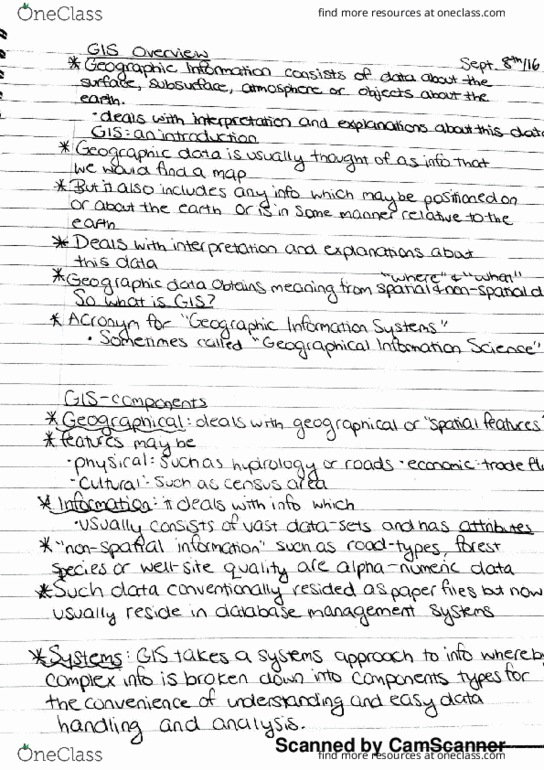 OneClass
find more resources at oneclass.com
GIS Overview
Sept. 8th/16
* Geographic Information consists of data about the
surface, subsurface, atmosphere or objects about the
earth.
· deals with interpretation and explanations about this data
GIS: an introduction
* Geographic data is usually thought of as info that
we would find a map
* But it also includes any info which may be positioned on
or about the earth or is in some manner relative to the
earth
* Deals with interpretation and explanations about
this data
"where" & "what"
* Geographic data obtains meaning from spatial & non-spatial d
So what is GIS?
* Acronym for "Geographic Information Systems"
· Sometimes called "Geographical Information Science"
GIS-components
* Geographical: deals with geographical or "spatial features"
* features may be
· physical: Such as hydrology or roads · economic: trade fl
· Cultural: Such as census area
* Information: it deals with info which
· usually consists of vast data-sets and has attributes
* "non-spatial information" such as road-types, forest
species or well-site quality are alpha-numeric data
* Such data conventionally resided as paper files but now
usually reside in database management systems
* Systems: GIS takes a systems approach to info whereby
complex info is broken down into components types for
the convenience of understanding and easy data
handling and analysis.
Scanned by CamScanner
OneClass
find more resources at oneclass.com